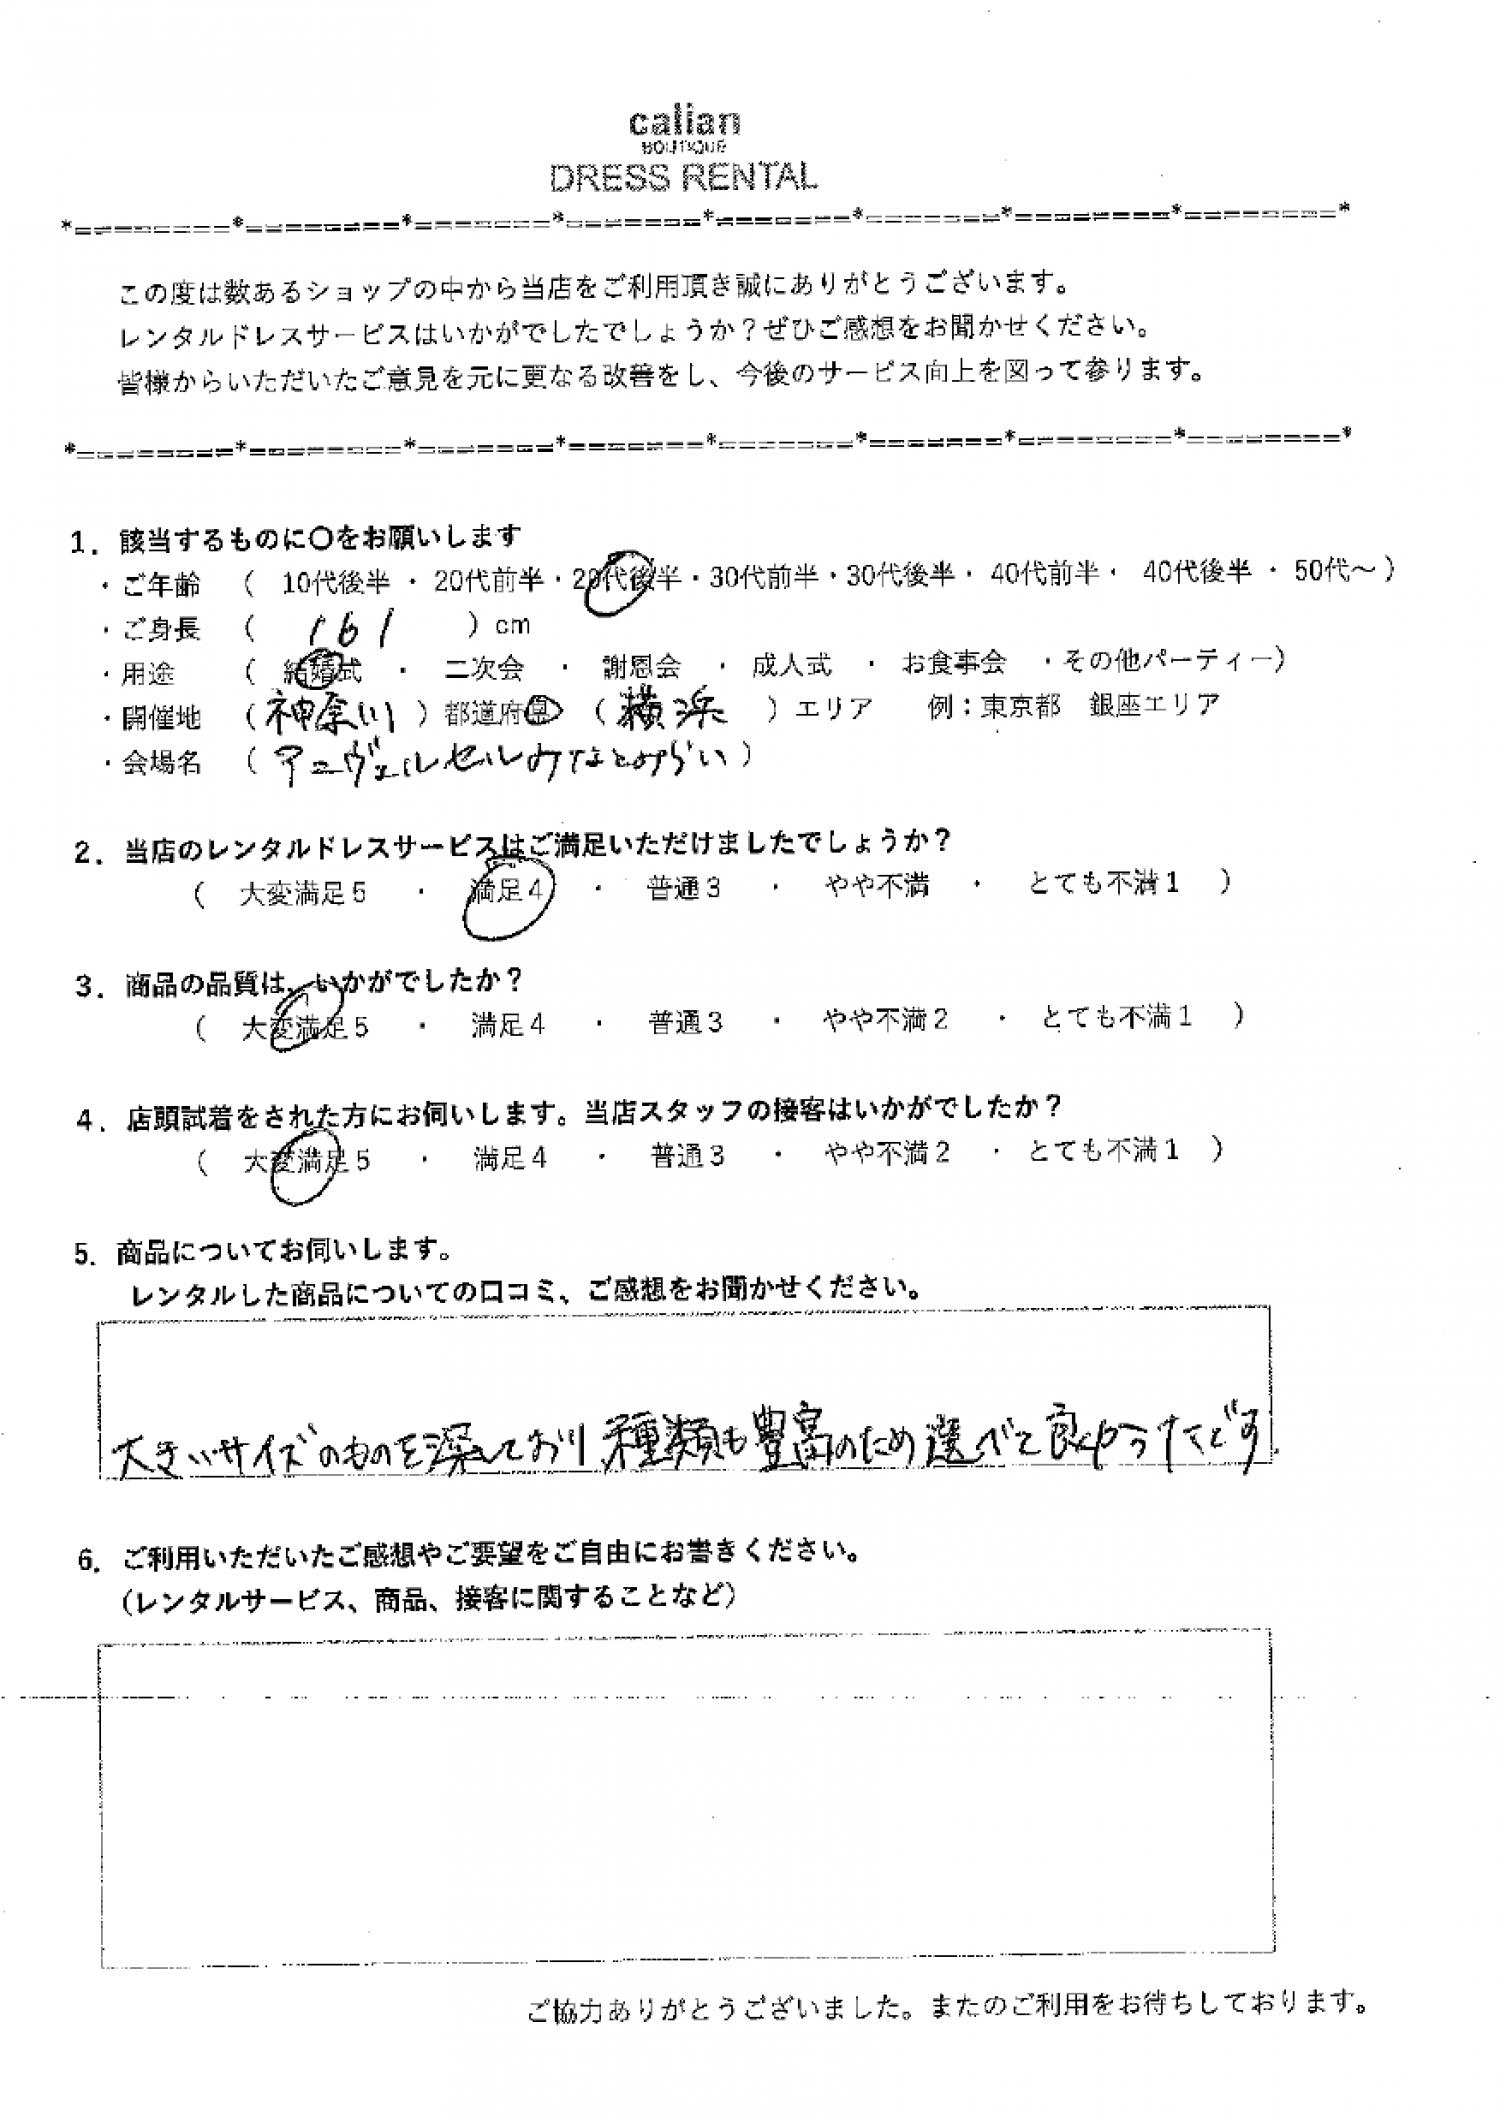 calian
BOUTIQUE
DRESS RENTAL
*========*========*=======*=======*=======*=======*========*========*
この度は数あるショップの中から当店をご利用頂き誠にありがとうございます。
レンタルドレスサービスはいかがでしたでしょうか？ぜひご感想をお聞かせください。
皆様からいただいたご意見を元に更なる改善をし、今後のサービス向上を図って参ります。
*========*========*=======*=======*=======*=======*========*========*
1．該当するものに〇をお願いします
・ご年齢 （ 10代後半 ・ 20代前半・20代後半・30代前半・30代後半・ 40代前半・ 40代後半 ・ 50代～）
・ご身長 （ 161 ）cm
・用途 （ 結婚式 ・ 二次会 ・ 謝恩会 ・ 成人式 ・ お食事会 ・その他パーティー）
・開催地 （神奈川）都道府県（横浜）エリア 例：東京都 銀座エリア
・会場名 （アニヴェルセルみなとみらい）
2．当店のレンタルドレスサービスはご満足いただけましたでしょうか？
（ 大変満足5 ・ 満足4 ・ 普通3 ・ やや不満 ・ とても不満1 ）
3．商品の品質は、いかがでしたか？
（ 大変満足5 ・ 満足4 ・ 普通3 ・ やや不満2 ・ とても不満1 ）
4．店頭試着をされた方にお伺いします。当店スタッフの接客はいかがでしたか？
（ 大変満足5 ・ 満足4 ・ 普通3 ・ やや不満2 ・ とても不満1 ）
5．商品についてお伺いします。
レンタルした商品についての口コミ、ご感想をお聞かせください。
大きいサイズのものを探しており、種類も豊富のため選べて良かったです。
6．ご利用いただいたご感想やご要望をご自由にお書きください。
（レンタルサービス、商品、接客に関することなど）
ご協力ありがとうございました。またのご利用をお待ちしております。